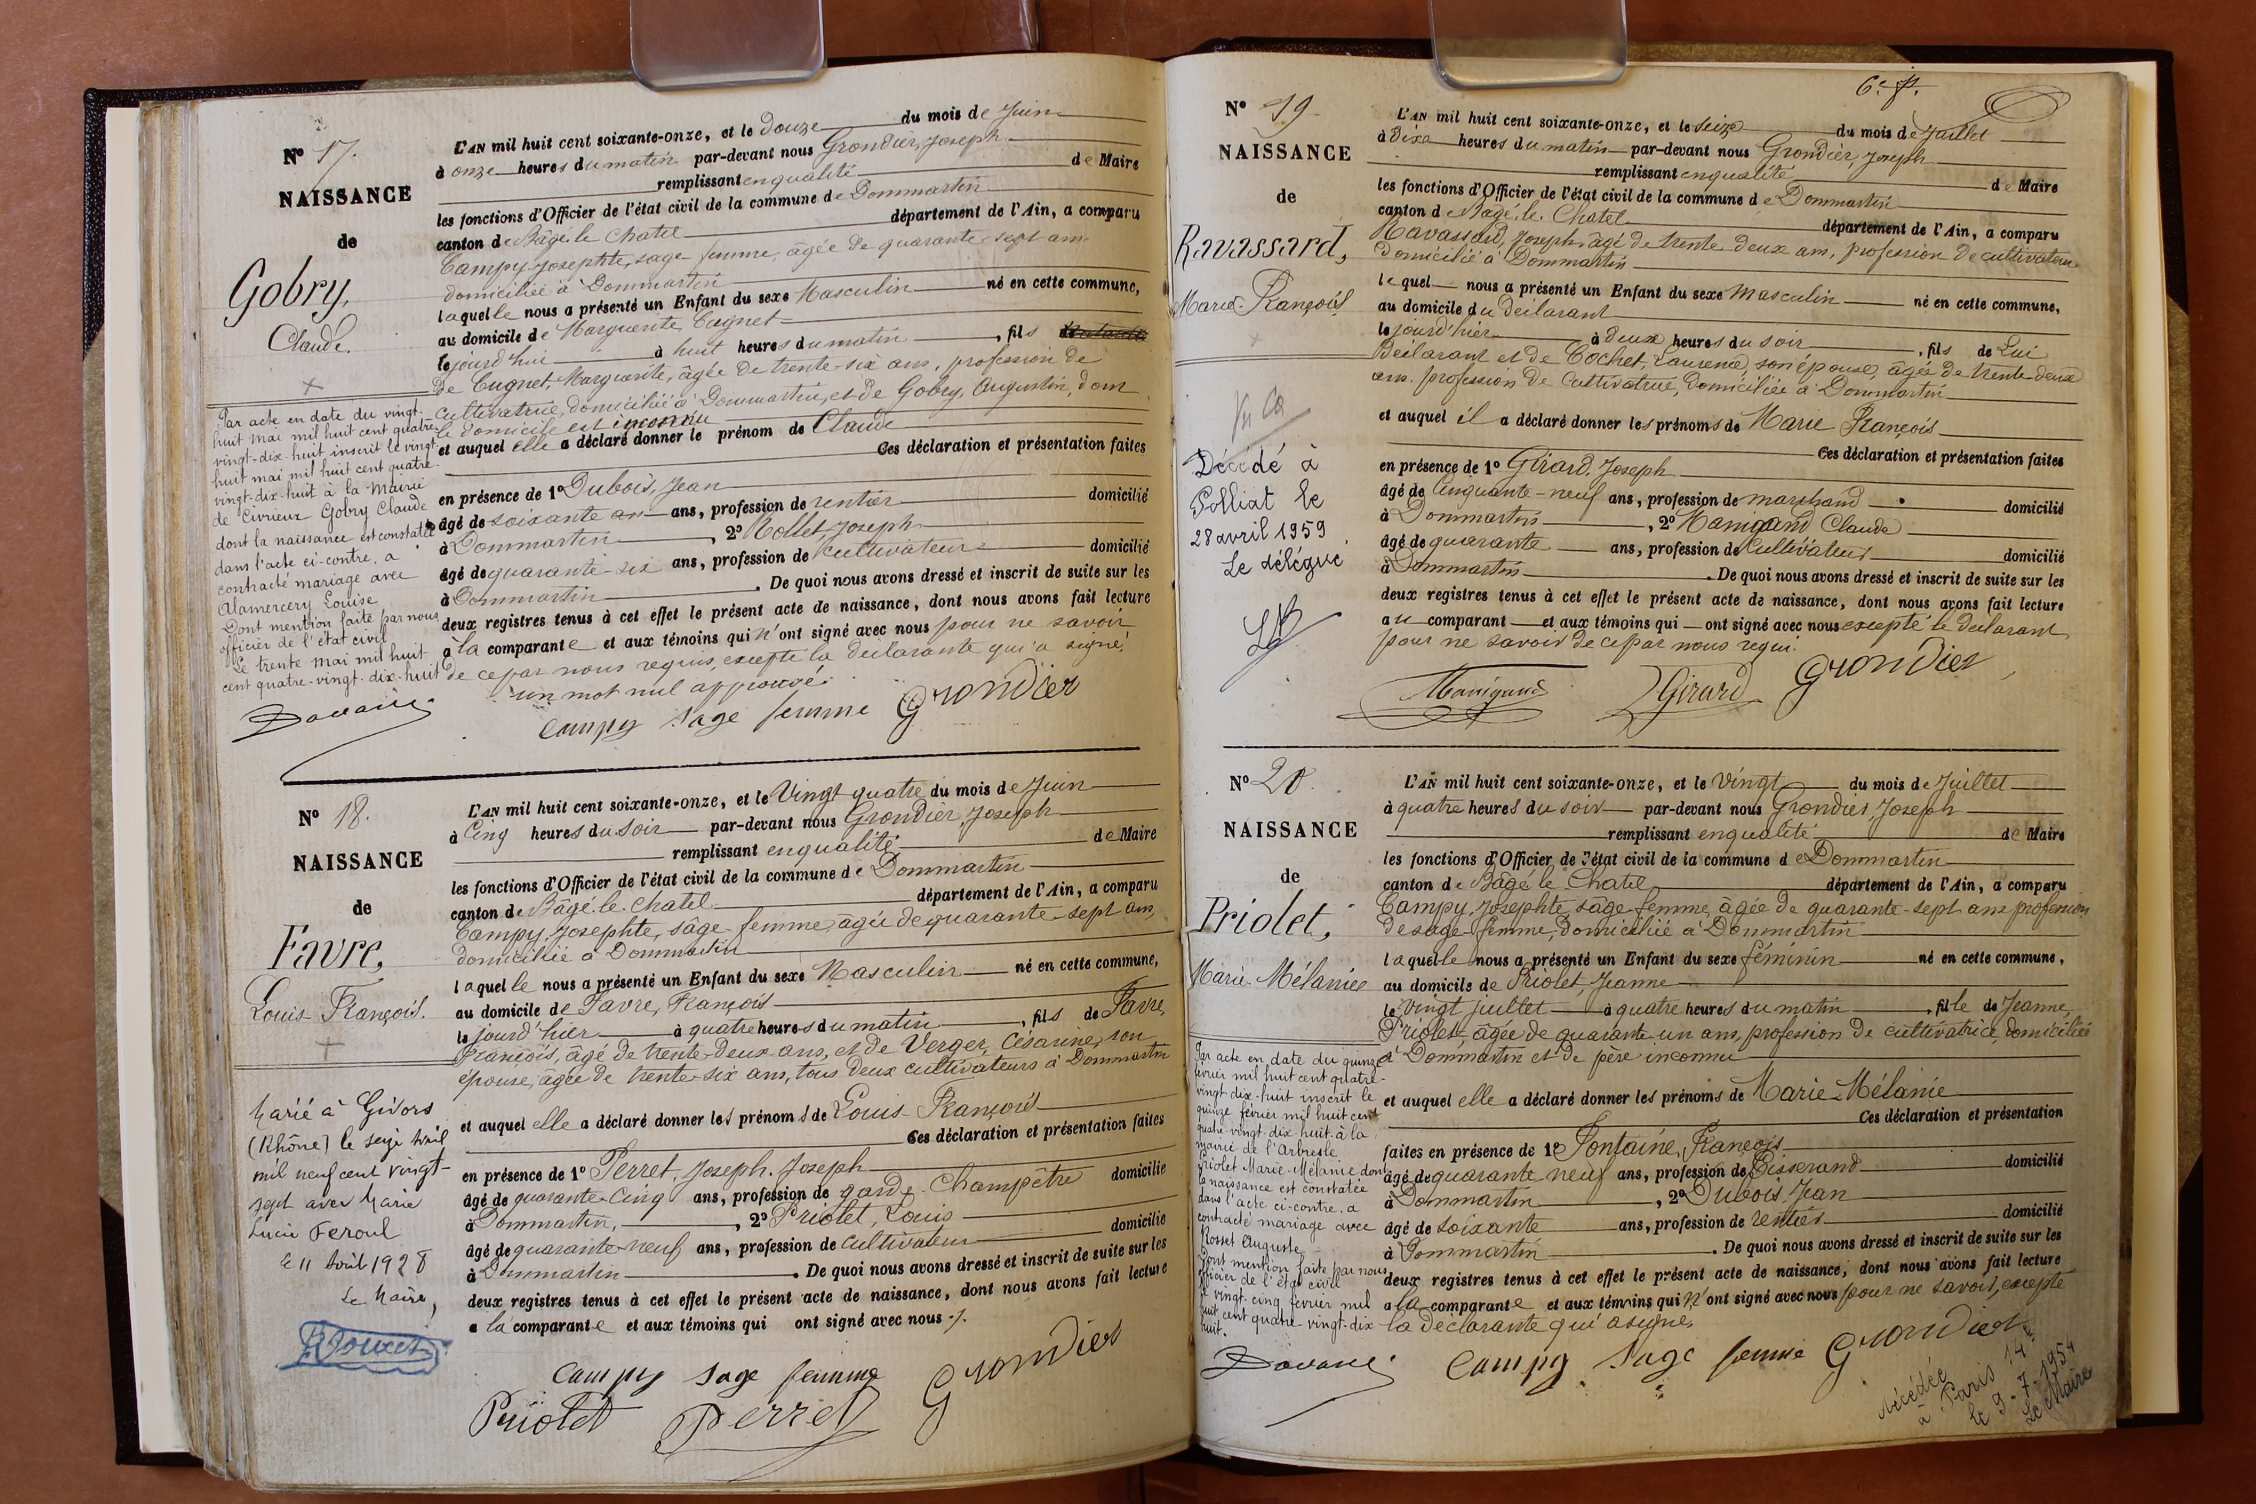 N° 17.
NAISSANCE
de
Gobry,
Claude.
L'AN mil huit cent soixante-onze, et le douze du mois de Juin
à onze heures du matin par-devant nous Grondier, Joseph
remplissant en qualité de Maire
les fonctions d'Officier de l'état civil de la commune de Dommartin
canton de Bâgé le Chatel département de l'Ain, a comparu
Campy Josephte, sage femme, âgée de quarante-sept ans
domiciliée à Dommartin
laquelle nous a présenté un Enfant du sexe Masculin né en cette commune,
au domicile de Marguerite Cugnet
le jourd'hui à huit heures du matin, fils
de Cugnet, Marguerite, âgée de trente-six ans, profession de
cultivatrice, domiciliée à Dommartin, et de Gobry, Augustin, dont
le domicile est inconnu
et auquel elle a déclaré donner le prénom de Claude
Ces déclaration et présentation faites
en présence de 1° Dubois, Jean
âgé de soixante an ans, profession de rentier domicilié
à Dommartin, 2° Nollet, Joseph
âgé de quarante-six ans, profession de cultivateur domicilié
à Dommartin. De quoi nous avons dressé et inscrit de suite sur les
deux registres tenus à cet effet le présent acte de naissance, dont nous avons fait lecture
à la comparante et aux témoins qui n'ont signé avec nous pour ne savoir
de ce par nous requis, excepté la déclarante qui a signé,
un mot nul approuvé.
Campy sage femme Grondier
Par acte en date du vingt-
huit mai mil huit cent quatre-
vingt-dix-huit inscrit le vingt-
huit mai mil huit cent quatre-
vingt-dix-huit à la Mairie
de Civrieux Gobry Claude
dont la naissance est constatée
dans l'acte ci-contre, a
contracté mariage avec
Alamercery Louise
Dont mention faite par nous
officier de l'état civil
Le trente mai mil huit
cent quatre-vingt-dix-huit
N° 18.
NAISSANCE
de
Favre,
Louis François.
L'AN mil huit cent soixante-onze, et le Vingt quatre du mois de Juin
à Cinq heures du soir par-devant nous Grondier, Joseph
remplissant en qualité de Maire
les fonctions d'Officier de l'état civil de la commune de Dommartin
canton de Bâgé le Chatel département de l'Ain, a comparu
Campy, Josephte, sâge-femme, âgée de quarante-sept ans,
domiciliée à Dommartin
laquelle nous a présenté un Enfant du sexe Masculin né en cette commune,
au domicile de Favre, François
le jourd'hier à quatre heures du matin, fils de Favre,
François, âgé de trente-deux ans, et de Verger, Césarine, son
épouse, âgée de trente-six ans, tous deux cultivateurs à Dommartin
et auquel elle a déclaré donner les prénoms de Louis-François
Ces déclaration et présentation faites
en présence de 1° Perret, Joseph. Joseph
âgé de quarante-cinq ans, profession de garde-Champêtre domicilié
à Dommartin, 2° Priolet, Louis
âgé de quarante-neuf ans, profession de cultivateur domicilié
à Dommartin. De quoi nous avons dressé et inscrit de suite sur les
deux registres tenus à cet effet le présent acte de naissance, dont nous avons fait lecture
à la comparante et aux témoins qui ont signé avec nous ./.
Campy sage femme Grondier
Priolet Perret
Marié à Givors
(Rhône) le seize Avril
mil neuf cent vingt-
sept avec Marie
Lucie Feroul
Le 11 Avril 1928
Le Maire,
N° 19
NAISSANCE
de
Ravassard,
Marie-François
L'AN mil huit cent soixante-onze, et le seize du mois de Juillet
à dixe heures du matin par-devant nous Grondier, Joseph
remplissant en qualité de Maire
les fonctions d'Officier de l'état civil de la commune de Dommartin
canton de Bâgé le Chatel département de l'Ain, a comparu
Ravassard, Joseph, âgé de trente-deux ans, profession de cultivateur
domicilié à Dommartin
lequel nous a présenté un Enfant du sexe Masculin né en cette commune,
au domicile du déclarant
le jourd'hier à deux heures du soir, fils de Lui
Déclarant et de Cochet, Laurence, son épouse, âgée de trente-deux
ans. profession de cultivatrice, domiciliée à Dommartin
et auquel il a déclaré donner les prénoms de Marie François
Ces déclaration et présentation faites
en présence de 1° Girard, Joseph
âgé de Cinquante-neuf ans, profession de marchand domicilié
à Dommartin, 2° Manigand Claude
âgé de quarante ans, profession de Cultivateur domicilié
à Dommartin. De quoi nous avons dressé et inscrit de suite sur les
deux registres tenus à cet effet le présent acte de naissance, dont nous avons fait lecture
au comparant et aux témoins qui ont signé avec nous excepté le déclarant
pour ne savoir de ce par nous requi.
Manigand Girard Grondier
Décédé à
Polliat le
28 avril 1959
Le délégué
N° 20
NAISSANCE
de
Priolet,
Marie-Mélanie
L'AN mil huit cent soixante-onze, et le Vingt du mois de Juillet
à quatre heures du soir par-devant nous Grondier, Joseph
remplissant en qualité de Maire
les fonctions d'Officier de l'état civil de la commune de Dommartin
canton de Bâgé le Chatel département de l'Ain, a comparu
Campy, Josephte, sâge-femme, âgée de quarante-sept ans profession
de sage-femme, domiciliée à Dommartin
laquelle nous a présenté un Enfant du sexe féminin né en cette commune,
au domicile de Priolet, Jeanne
le vingt juillet à quatre heures du matin, fille de Jeanne,
Priolet, âgée de quarante-un ans, profession de cultivatrice, domiciliée
à Dommartin et de père inconnu
et auquel elle a déclaré donner les prénoms de Marie-Mélanie
Ces déclaration et présentation
faites en présence de 1° Fontaine, François
âgé de quarante neuf ans, profession de Tisserand domicilié
à Dommartin, 2° Dubois, Jean
âgé de soixante ans, profession de rentier domicilié
à Dommartin. De quoi nous avons dressé et inscrit de suite sur les
deux registres tenus à cet effet le présent acte de naissance, dont nous avons fait lecture
à la comparante et aux témoins qui n'ont signé avec nous pour ne savoir, excepté
la déclarante qui a signé,
Campy sage femme Grondier
Par acte en date du quinze
février mil huit cent quatre-
vingt-dix-huit inscrit le
quinze février mil huit cent
quatre-vingt-dix-huit à la
mairie de l'Arbresle
Priolet Marie-Mélanie dont
la naissance est constatée
dans l'acte ci-contre, a
contracté mariage avec
Rosset Auguste
Dont mention faite par nous
officier de l'état civil
le vingt-cinq février mil
huit cent quatre-vingt-dix
huit.
Décédée
à Paris 14e
le 9-7-1954
Le Maire